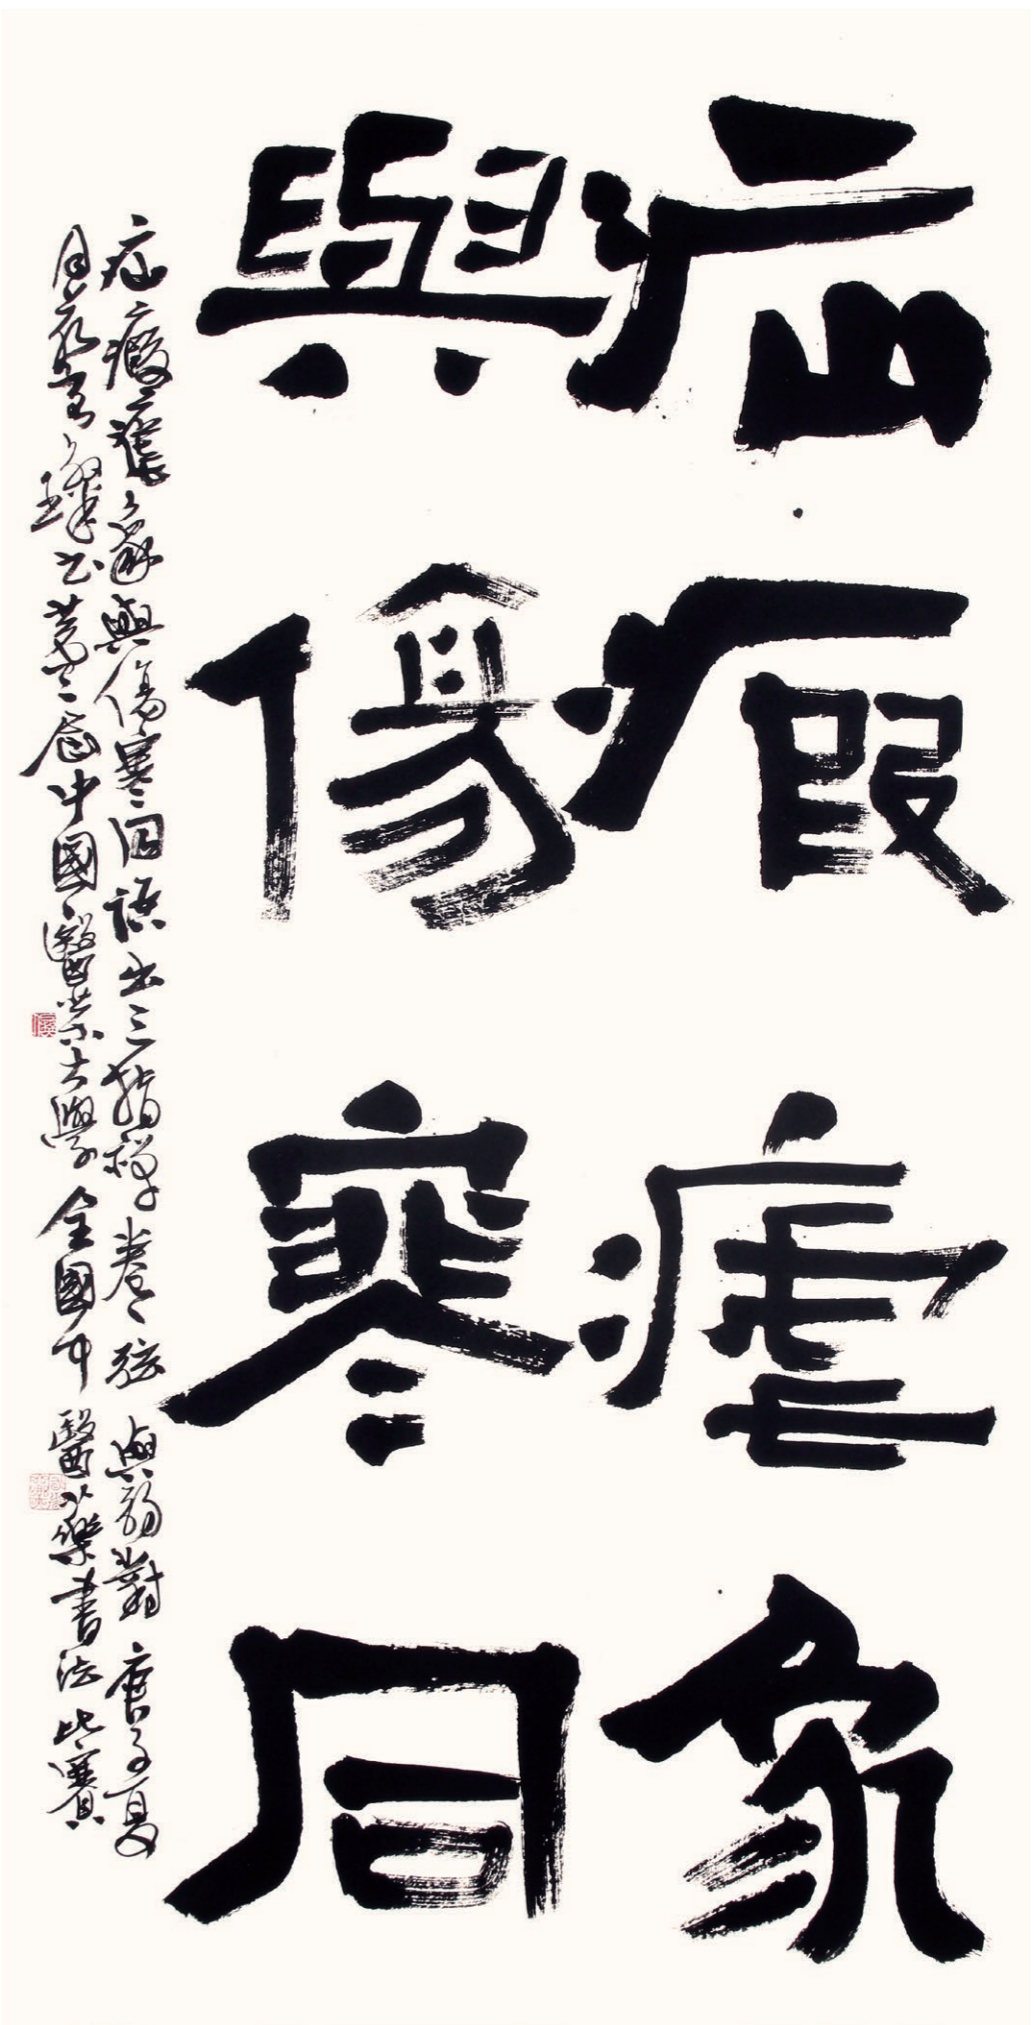 疝瘕瘧象
與傷寒同
疝瘕瘧象與傷寒同語出三指禪卷一弦與弱對 庚子夏
月 書 第二屆中國醫藥大學全國中醫藥書法比賽